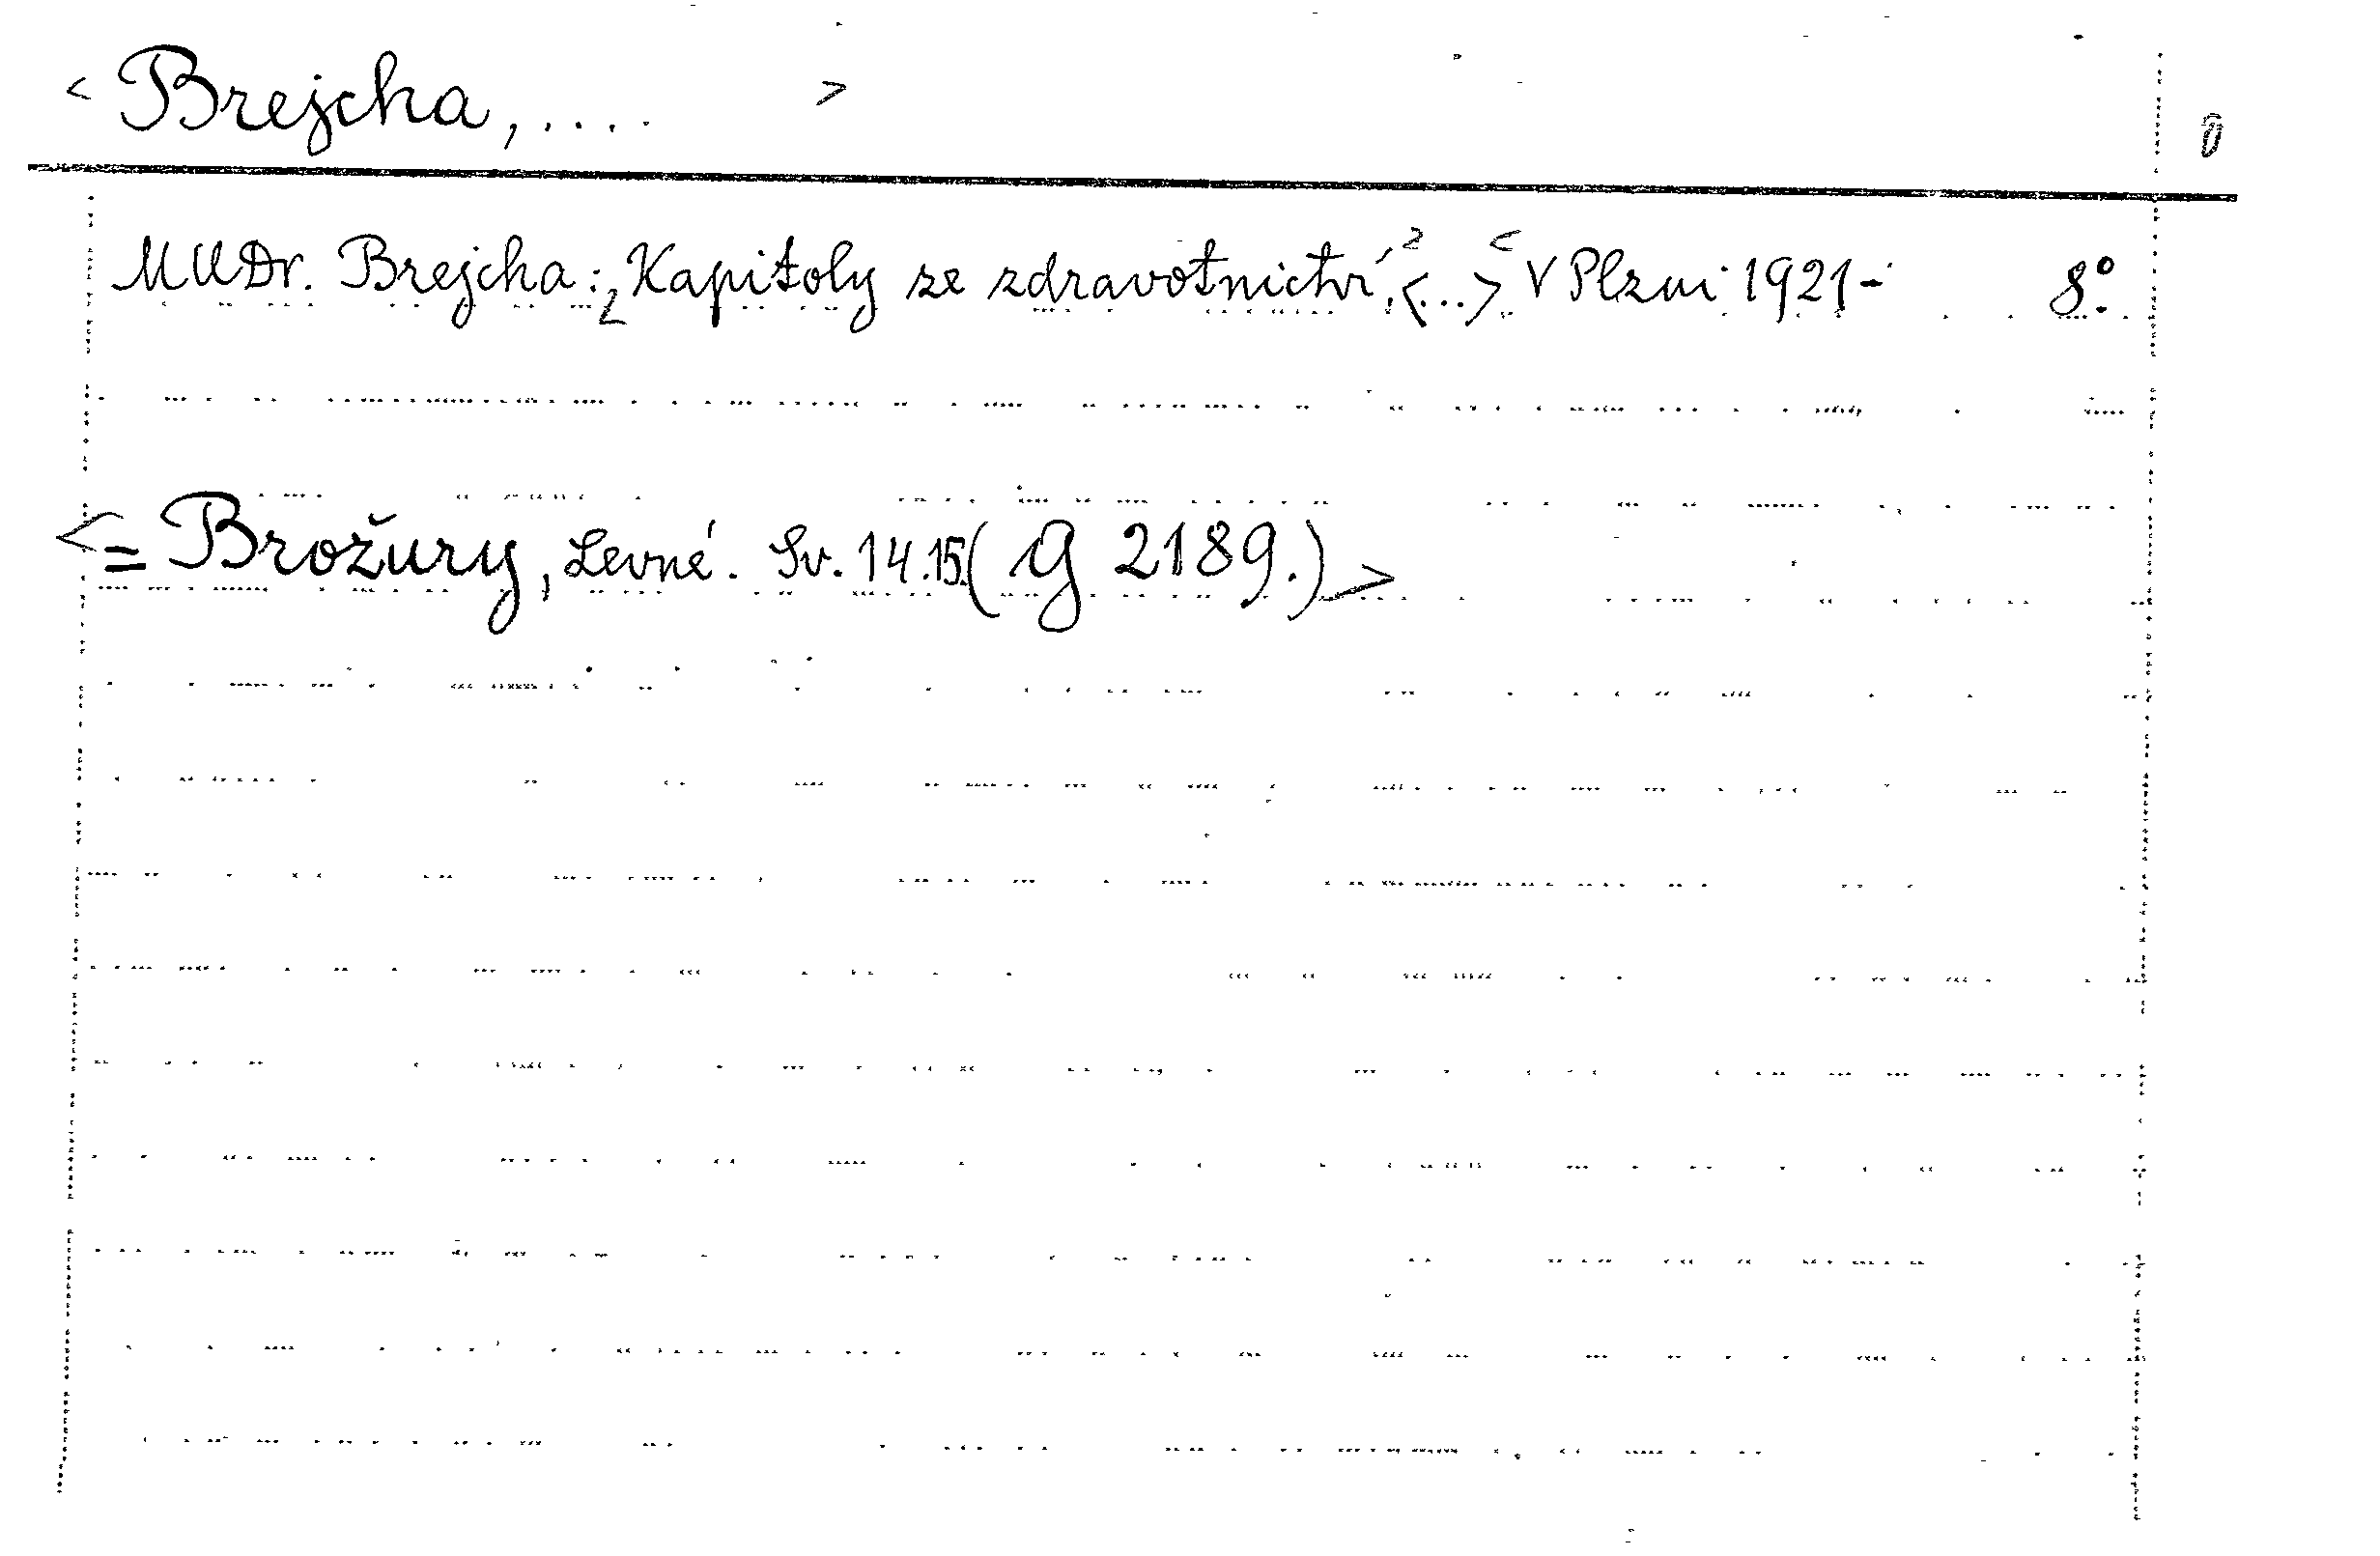 < Brejcha, .... >
MUDr. Brejcha: Kapitoly ze zdravotnictví. <...> V Plzni 1921- 8°.
<= Brožury, Levné. Sv. 14.15. (G 2189.)>